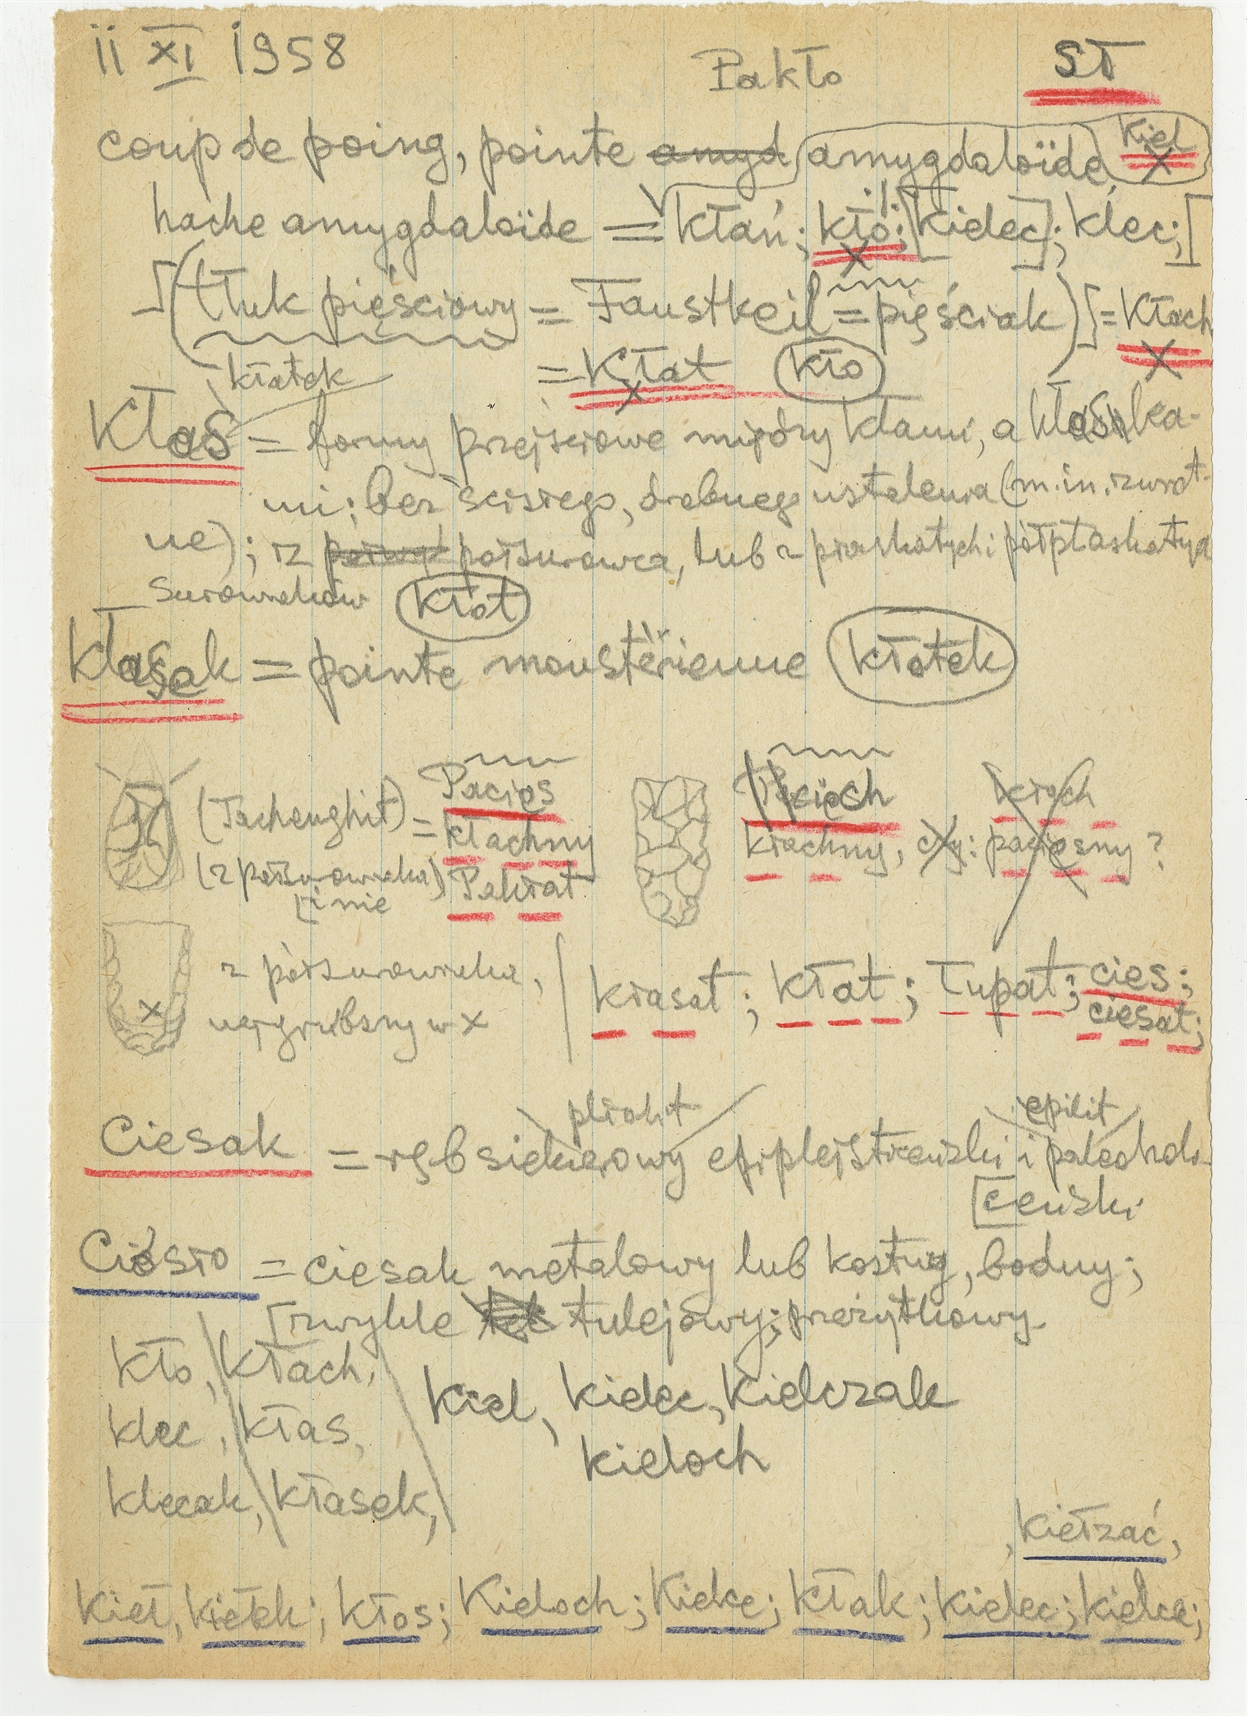 11 XI 1958
Pakło
SŁ
coup de poing, pointe amyd amygdaloïde, Kieł
hache amygdaloïde = kłań; kło; [kielec]; klec;
(tłuk pięściowy = Faustkeil = pięściak) = kłach
kłatek = kłat kło
Kłas = formy przejściowe między kłami, a kłasaka-
mi; bez ścisłego, drobnego ustalenia (m.in. zwrot-
ne); iz półsurowca, lub z płaskatych i półpłaskatych
surowiaków kłat
Kłasak = pointe moustérienne kłatek
(Tachenghit) = Pacios
kłachny
(z półsurowiaka) Pakłat
i nie
kłachny, czy: paciosny?
kłach
z półsurowiaka,
najgrubszy w x
kłasat; kłat; łupat; cies;
ciesat;
płoht epilit
Ciesak = rąb siekierowy epiplejstoceński i paleoholo-
ceński
Ciosło = ciesak metalowy lub kostny, bodny;
zwykle tulejowy; przeżytkowy
kło, kłach,
klec, kłas,
klecak, kłasek,
kiel, kielec, kielczak
kieloch
, kiełzać,
kieł, kiełek; kłos; Kieloch; Kielce; kłak; kielec; kielce;